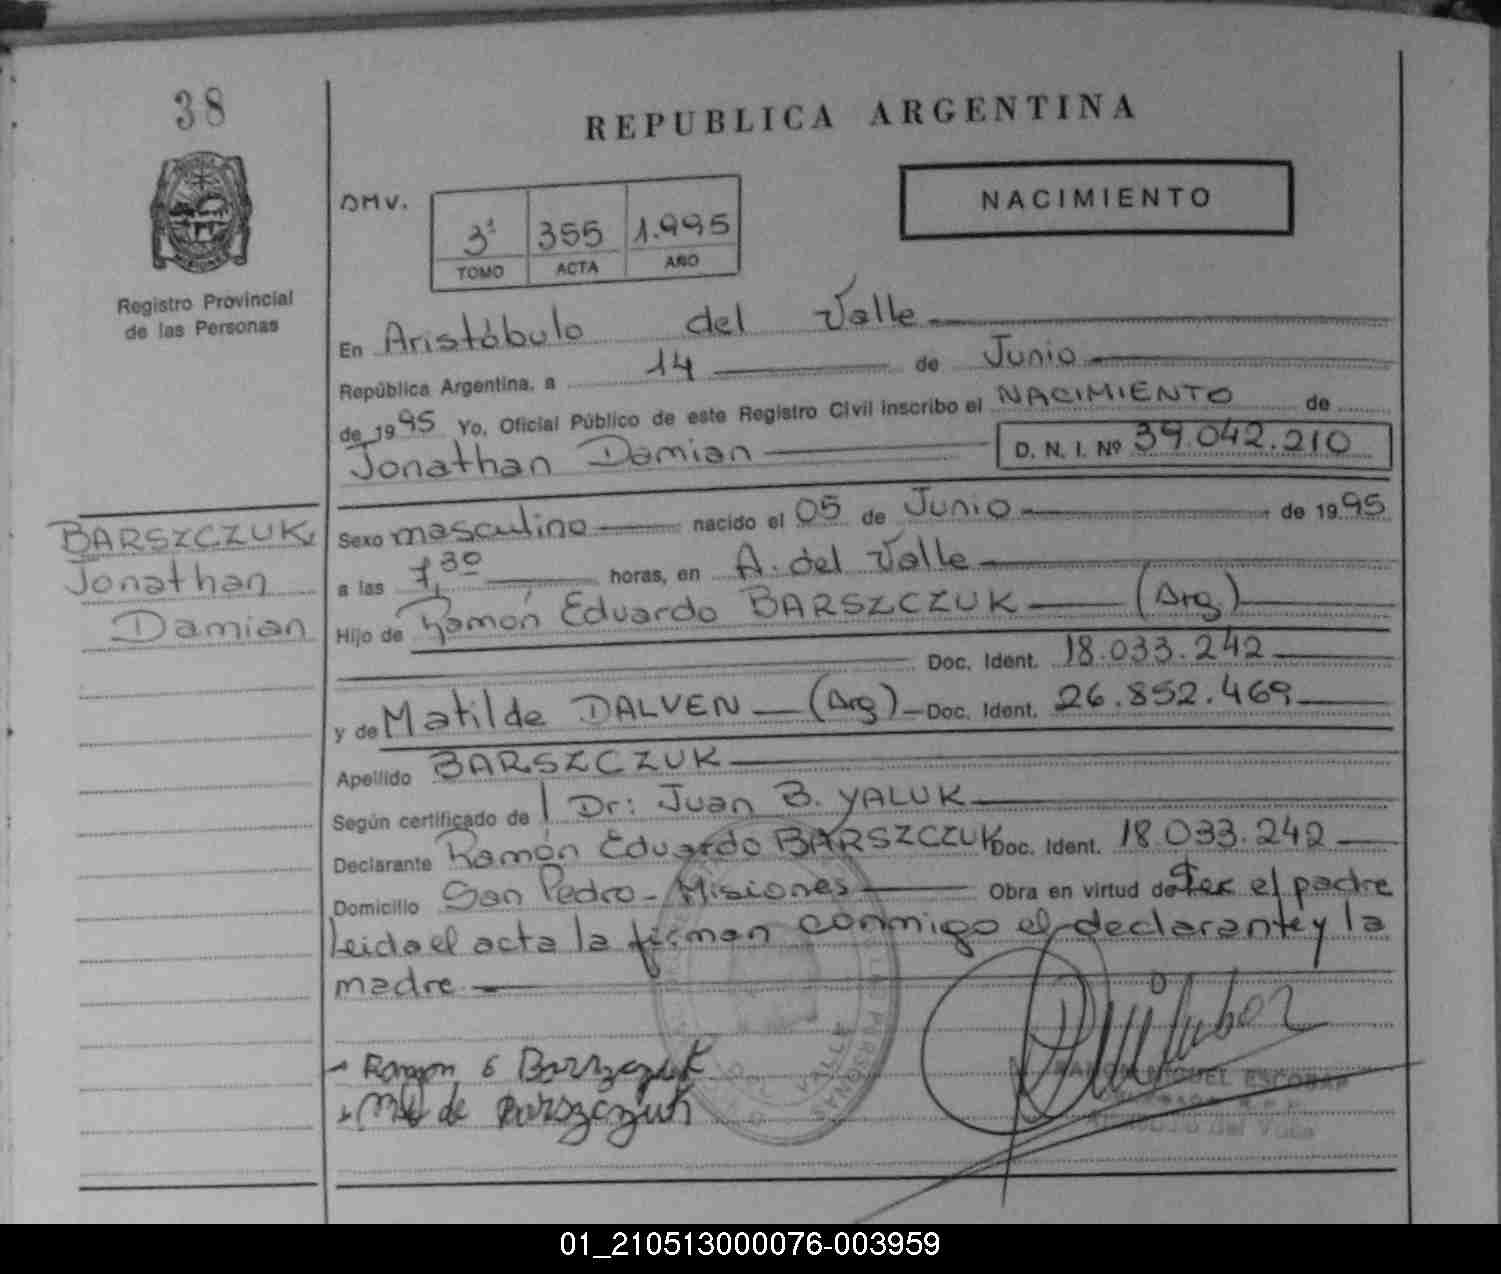 38
REPUBLICA ARGENTINA
NACIMIENTO
DMV.
3ª 355 1.995
TOMO ACTA AÑO
Registro Provincial
de las Personas
En Aristóbulo del Valle
República Argentina, a 14 de Junio
de 1995 Yo, Oficial Público de este Registro Civil inscribo el NACIMIENTO de
Jonathan Damian D. N. I. Nº 39.042.210
BARSZCZUK,
Jonathan
Damian
Sexo masculino nacido el 05 de Junio de 1995
a las 7,30 horas, en A. del Valle
Hijo de Ramón Eduardo BARSZCZUK (Arg)
Doc. Ident. 18.033.242
y de Matilde DALVEN (Arg) Doc. Ident. 26.852.469
Apellido BARSZCZUK
Según certificado de Dr: Juan B. YALUK
Declarante Ramón Eduardo BARSZCZUK Doc. Ident. 18.033.242
Domicilio San Pedro - Misiones Obra en virtud de Ser el padre
leida el acta la firman conmigo el declarante y la
madre
Ramon E Barszczuk
de Barszczuk
MIGUEL ESCOBAR
del Valle
01_210513000076-003959